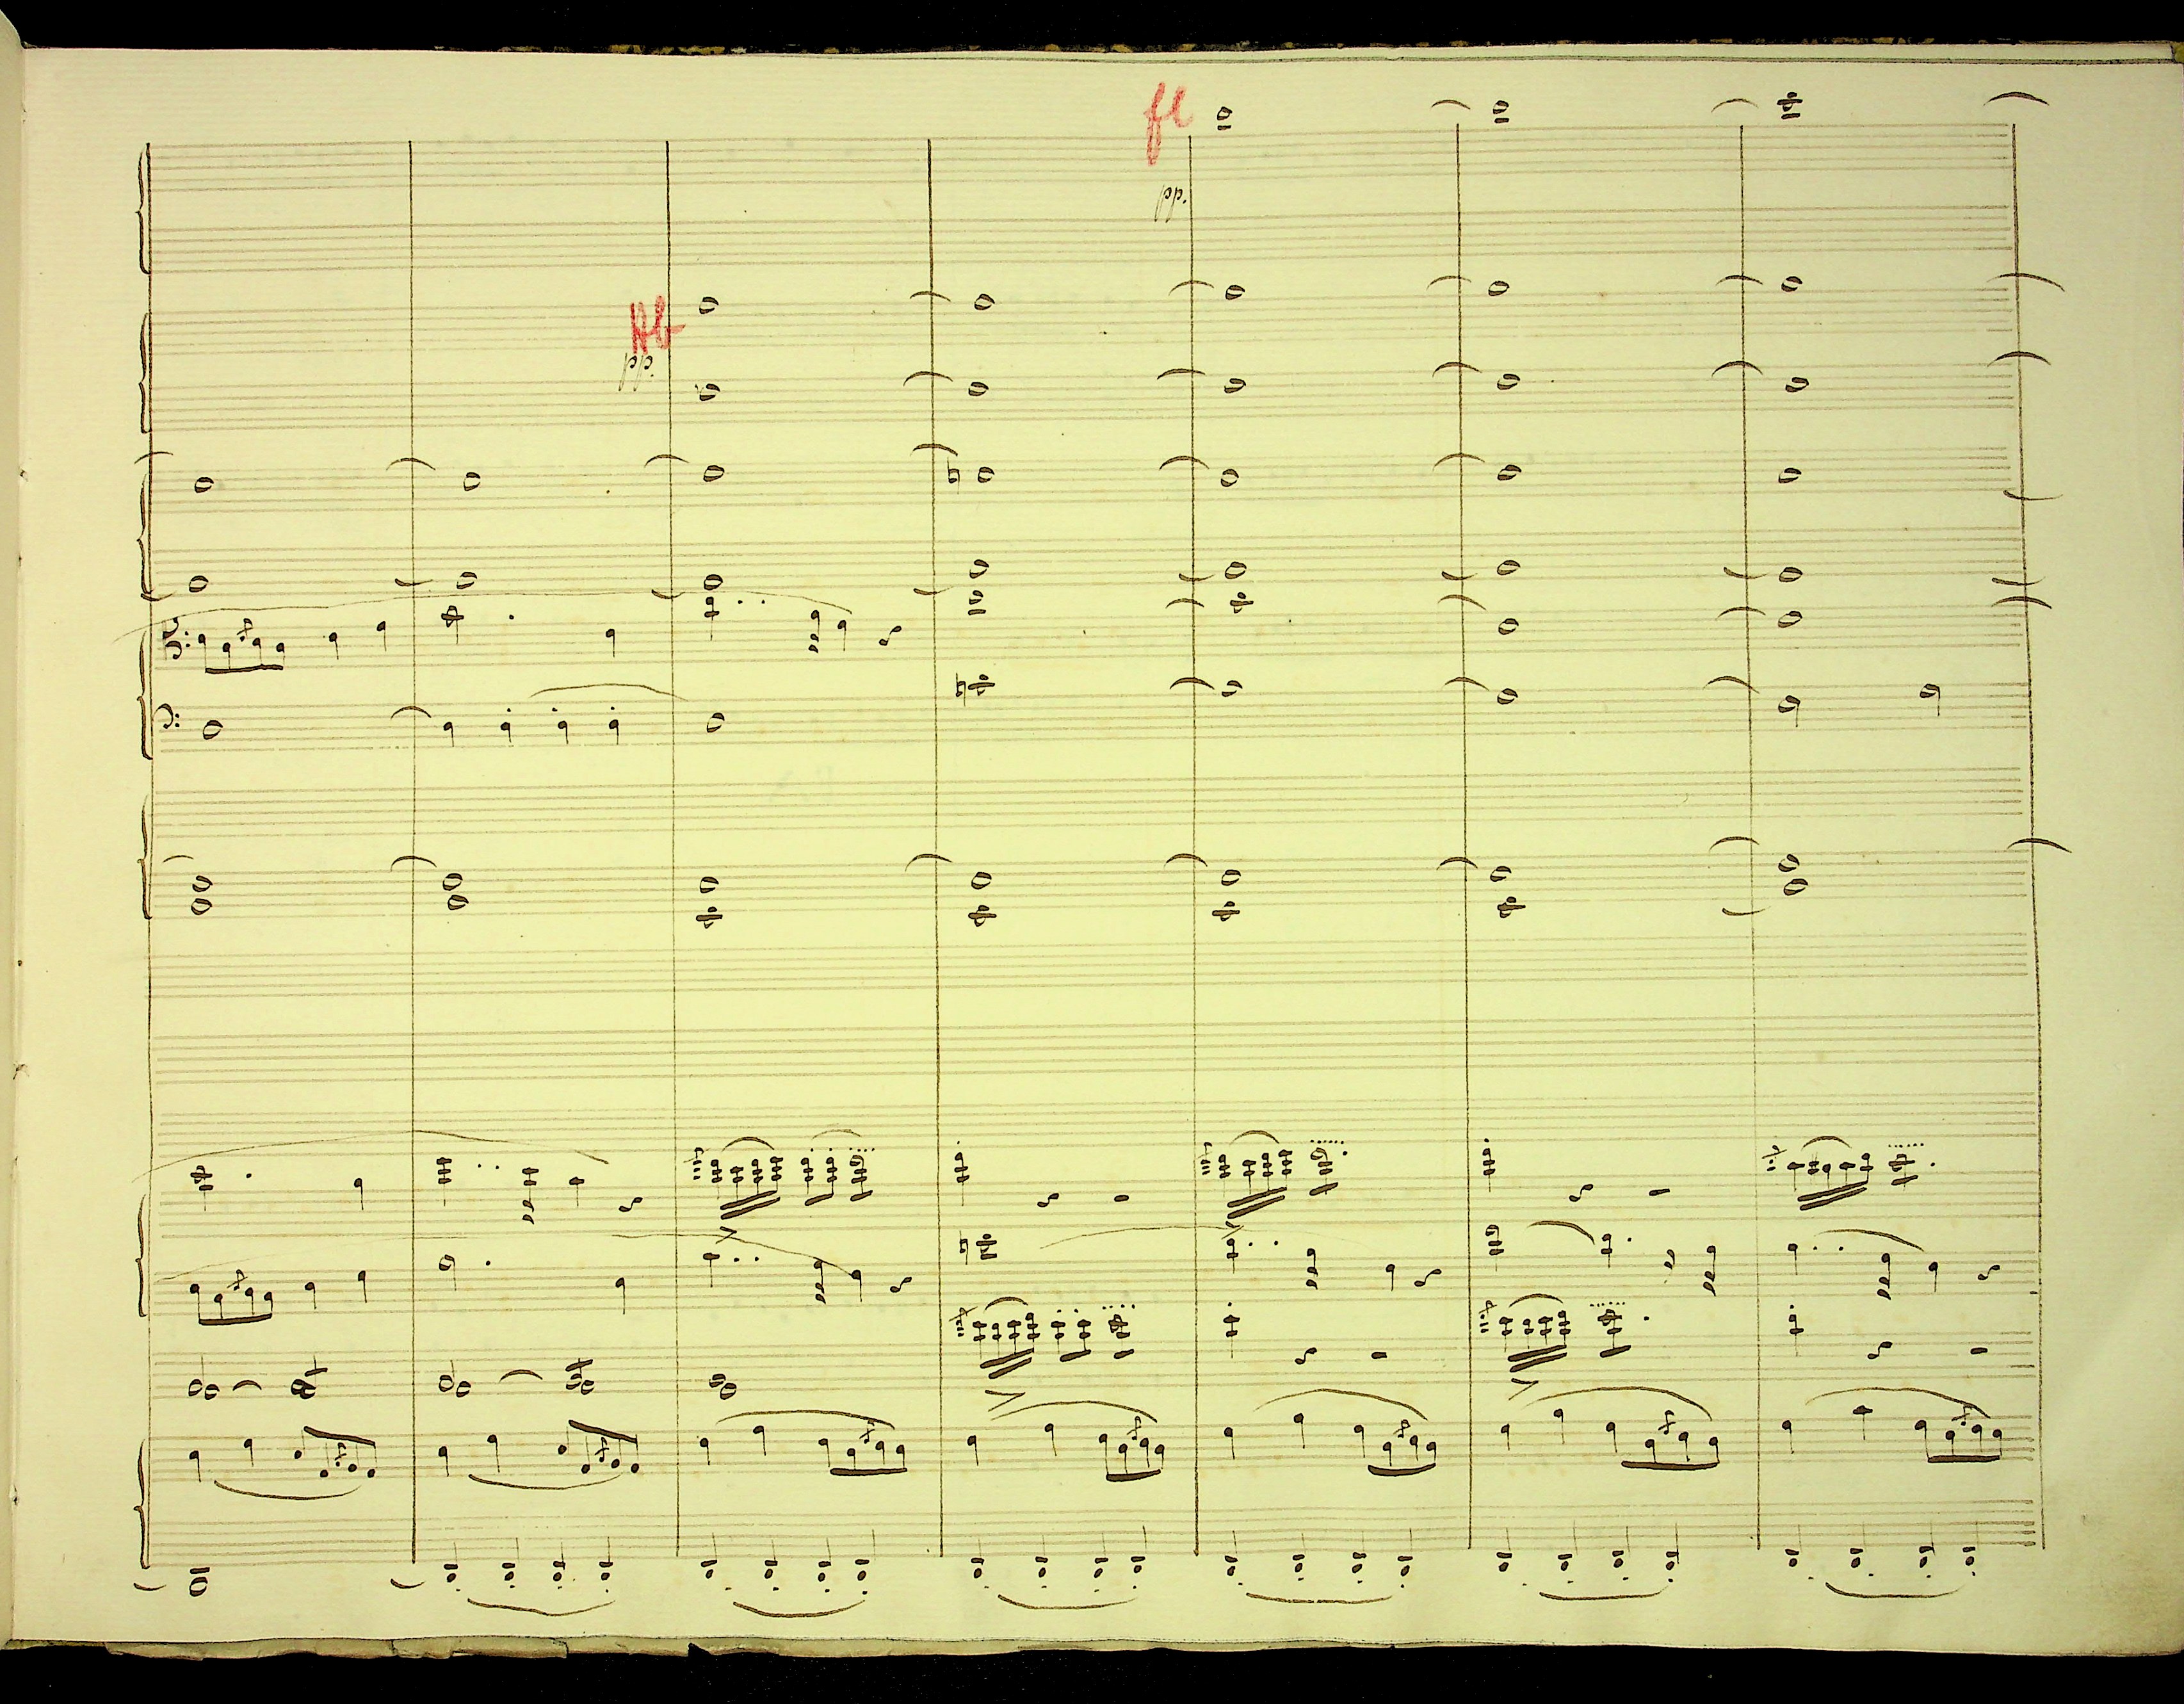 fl
pp.
Hb
pp.